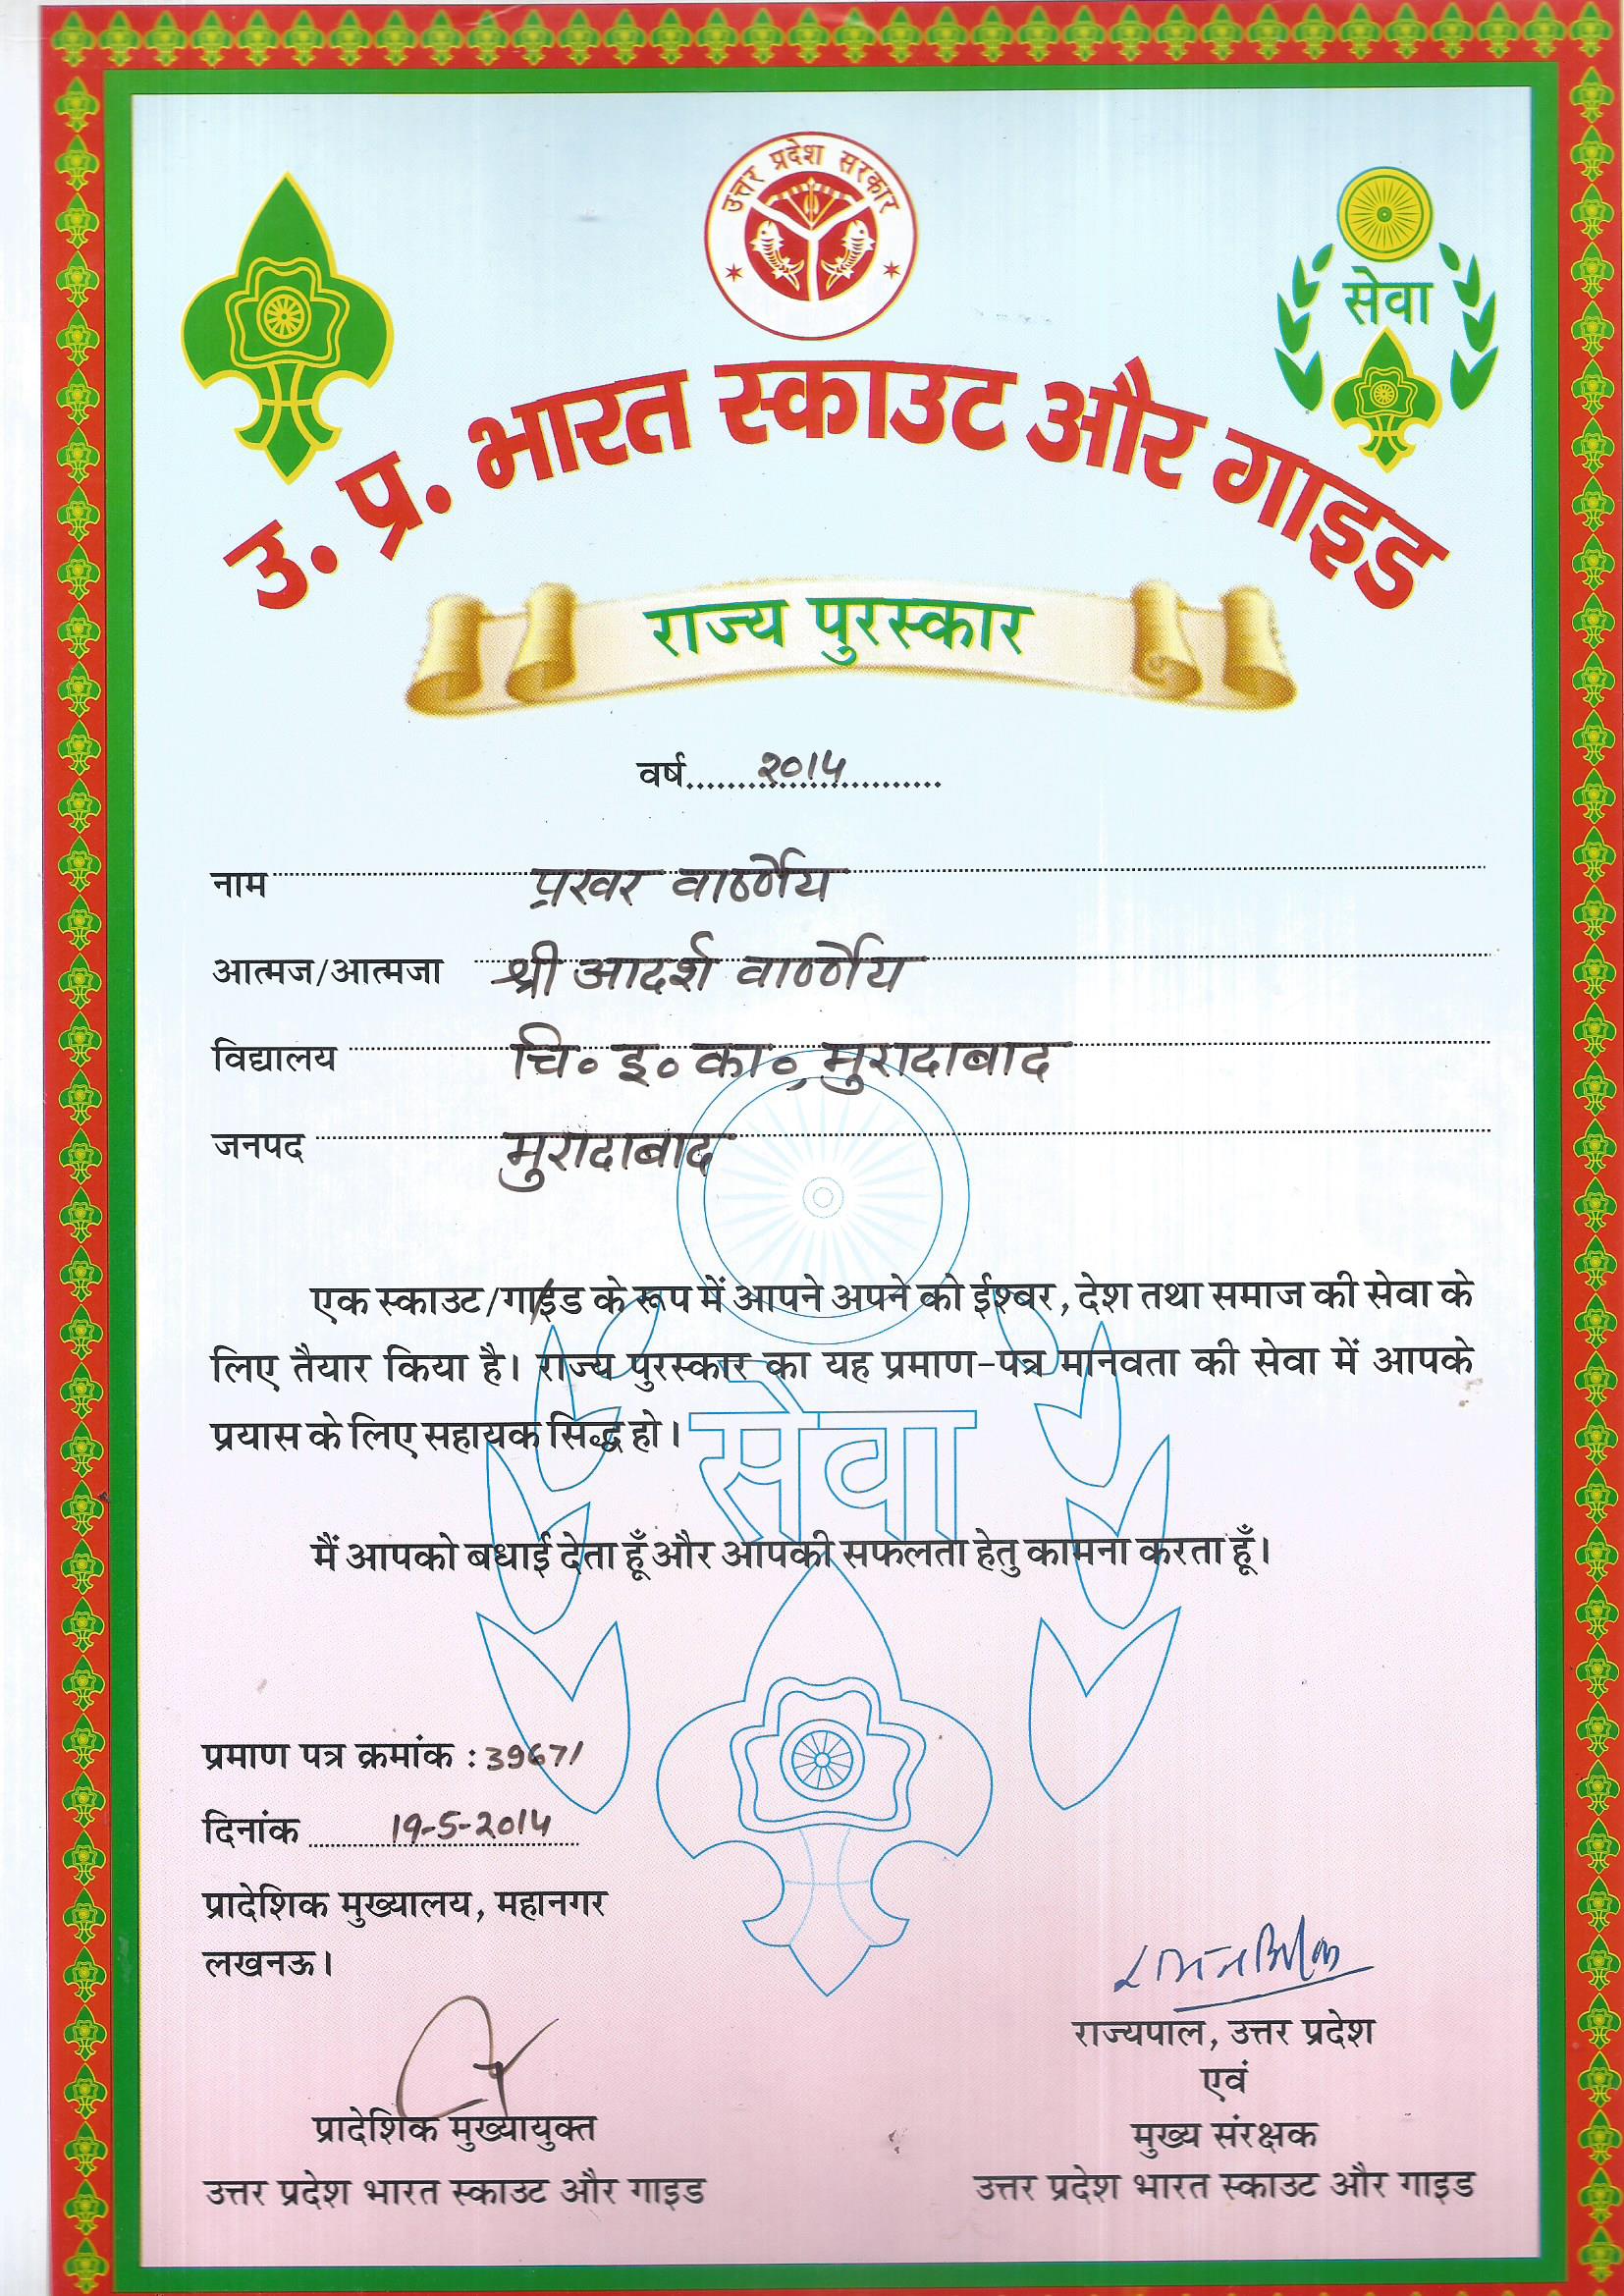 उत्तर प्रदेश सरकार
सेवा
उ. प्र. भारत स्काउट और गाइड
राज्य पुरस्कार
वर्ष.....२०१५.....
नाम प्रखर वार्ष्णेय
आत्मज/आत्मजा श्री आदर्श वार्ष्णेय
विद्यालय चि० इ० का०, मुरादाबाद
जनपद मुरादाबाद
एक स्काउट/गाइड के रूप में आपने अपने को ईश्वर, देश तथा समाज की सेवा के
लिए तैयार किया है। राज्य पुरस्कार का यह प्रमाण-पत्र मानवता की सेवा में आपके
प्रयास के लिए सहायक सिद्ध हो।
सेवा
मैं आपको बधाई देता हूँ और आपकी सफलता हेतु कामना करता हूँ।
प्रमाण पत्र क्रमांक : 39671
दिनांक 19-5-2014
प्रादेशिक मुख्यालय, महानगर
लखनऊ।
राज्यपाल, उत्तर प्रदेश
एवं
प्रादेशिक मुख्यायुक्त
मुख्य संरक्षक
उत्तर प्रदेश भारत स्काउट और गाइड
उत्तर प्रदेश भारत स्काउट और गाइड